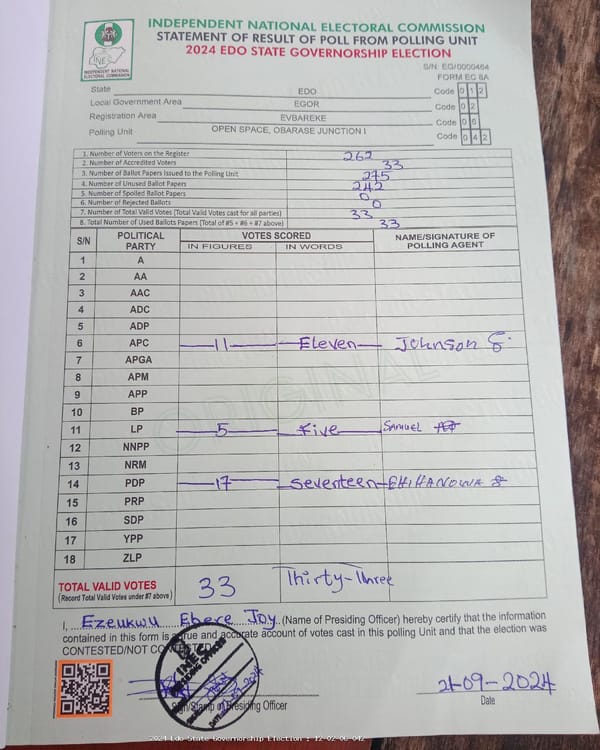 INDEPENDENT NATIONAL ELECTORAL COMMISSION
STATEMENT OF RESULT OF POLL FROM POLLING UNIT
2024 EDO STATE GOVERNORSHIP ELECTION
INDEPENDENT NATIONAL ELECTORAL COMMISSION
S/N: EG/0000464
FORM EC 8A
State EDO Code 0 1 2
Local Government Area EGOR Code 0 2
Registration Area EVBAREKE Code 0 6
Polling Unit OPEN SPACE, OBARASE JUNCTION I Code 0 4 2
1. Number of Voters on the Register 262
2. Number of Accredited Voters 33
3. Number of Ballot Papers Issued to the Polling Unit 275
4. Number of Unused Ballot Papers 242
5. Number of Spoiled Ballot Papers 0
6. Number of Rejected Ballots 0
7. Number of Total Valid Votes (Total Valid Votes cast for all parties) 33
8. Total Number of Used Ballots Papers (Total of #5 + #6 + #7 above) 33
S/N POLITICAL PARTY VOTES SCORED NAME/SIGNATURE OF POLLING AGENT
IN FIGURES IN WORDS
1 A
2 AA
3 AAC
4 ADC
5 ADP
6 APC 11 Eleven Johnson
7 APGA
8 APM
9 APP
10 BP
11 LP 5 Five SAMUEL
12 NNPP
13 NRM
14 PDP 17 Seventeen EHIHANOWA
15 PRP
16 SDP
17 YPP
18 ZLP
ORIGINAL
TOTAL VALID VOTES 33 Thirty-Three
(Record Total Valid Votes under #7 above)
I, Ezeukwu Ebere Joy (Name of Presiding Officer) hereby certify that the information
contained in this form is a true and accurate account of votes cast in this polling Unit and that the election was
CONTESTED/NOT CONTESTED
INEC
PRESIDING OFFICER
Sign/Stamp of Presiding Officer
21-09-2024
Date
2024 Edo State Governorship Election : 12-02-06-042